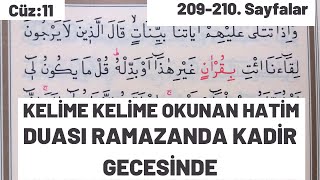 Cüz:11
209-210. Sayfalar
وَاِذَا تُتْلٰى عَلَيْهِمْ اٰيَاتُنَا بَيِّنَاتٍ قَالَ الَّذ۪ينَ لَا يَرْجُونَ
لِقَٓاءَنَا ائْتِ بِقُرْاٰنٍ غَيْرِ هٰذَٓا اَوْ بَدِّلْهُ قُلْ مَا يَكُونُ ل۪ٓي
KELİME KELİME OKUNAN HATİM
DUASI RAMAZANDA KADİR
GECESİNDE